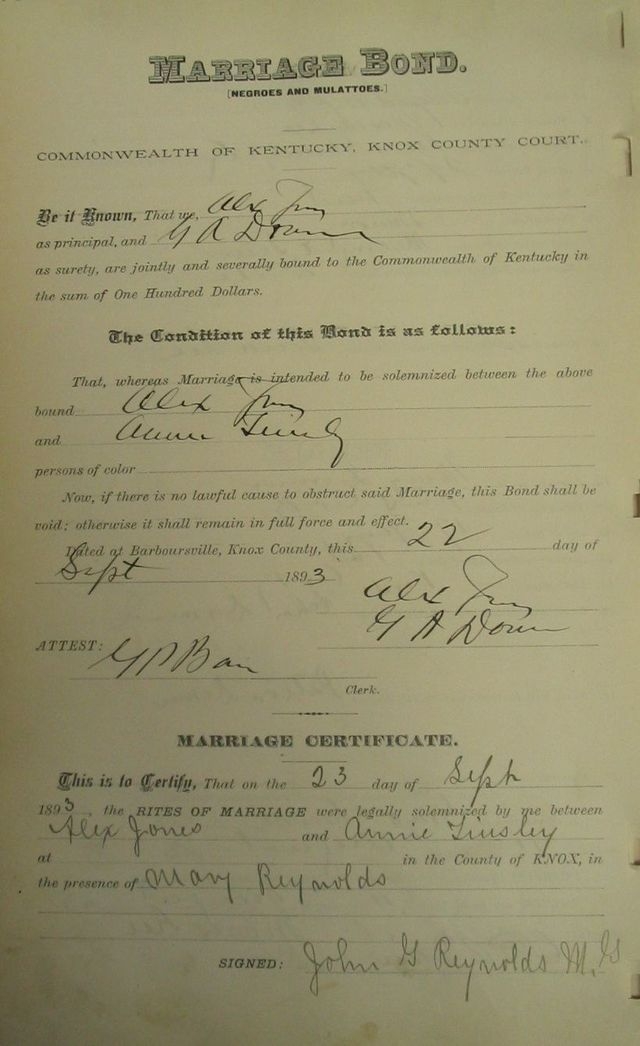 MARRIAGE BOND.
[NEGROES AND MULATTOES.]
COMMONWEALTH OF KENTUCKY, KNOX COUNTY COURT.
Be it Known, That we, Alex
as principal, and G A
as surety, are jointly and severally bound to the Commonwealth of Kentucky in
the sum of One Hundred Dollars.
The Condition of this Bond is as follows:
That, whereas Marriage is intended to be solemnized between the above
bound Alex
and Annie Tinsly
persons of color
Now, if there is no lawful cause to obstruct said Marriage, this Bond shall be
void; otherwise it shall remain in full force and effect.
Dated at Barboursville, Knox County, this 22 day of
Sept 1893
Alex
G A
ATTEST:
Clerk.
MARRIAGE CERTIFICATE.
This is to Certify, That on the 23 day of Sept
1893, the RITES OF MARRIAGE were legally solemnized by me between
Alex Jones and Annie Tinsley
at in the County of KNOX, in
the presence of Mary Reynolds
SIGNED: John G Reynolds M.G